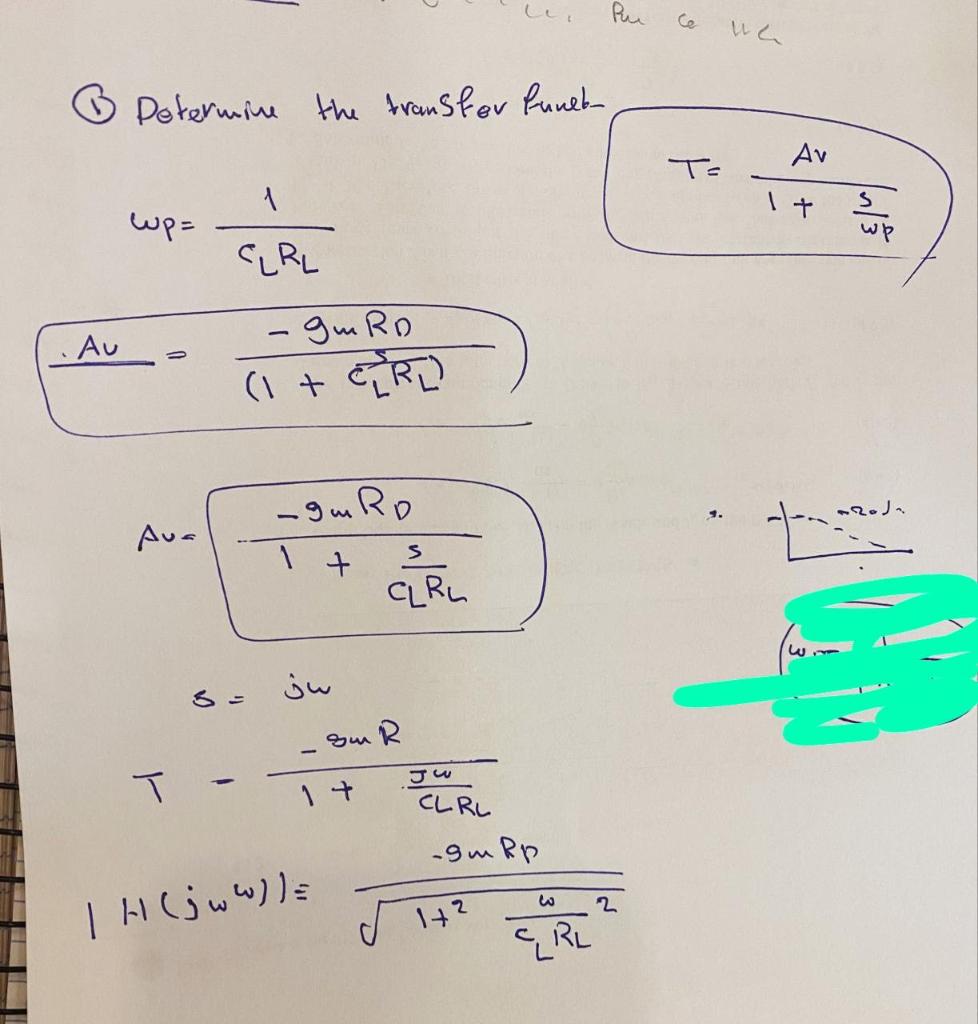 ① Determine the transfer funct
T = Av / (1 + s/wp)
wp = 1 / (CLRL)
Av = -gmRD / (1 + s/CLRL)
Av = -gmRD / (1 + s/CLRL)
s = jw
T - -gmR / (1 + Jw/CLRL)
|H(jw w)| = -gmRD / √(1+² (w/CLRL)²)